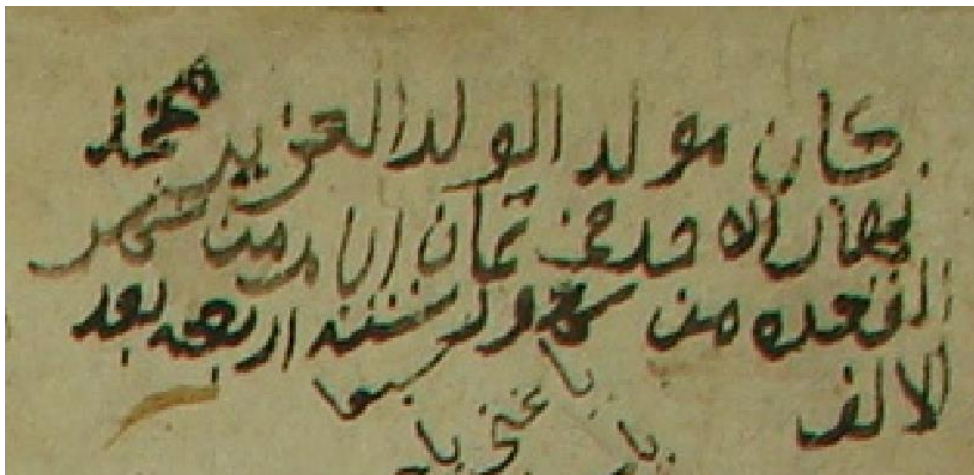 كان مولد الولد العزيز محمد
نهار الاحد في ثمان ايام من شهر
القعده من شهور سنة اربعه بعد
الالف